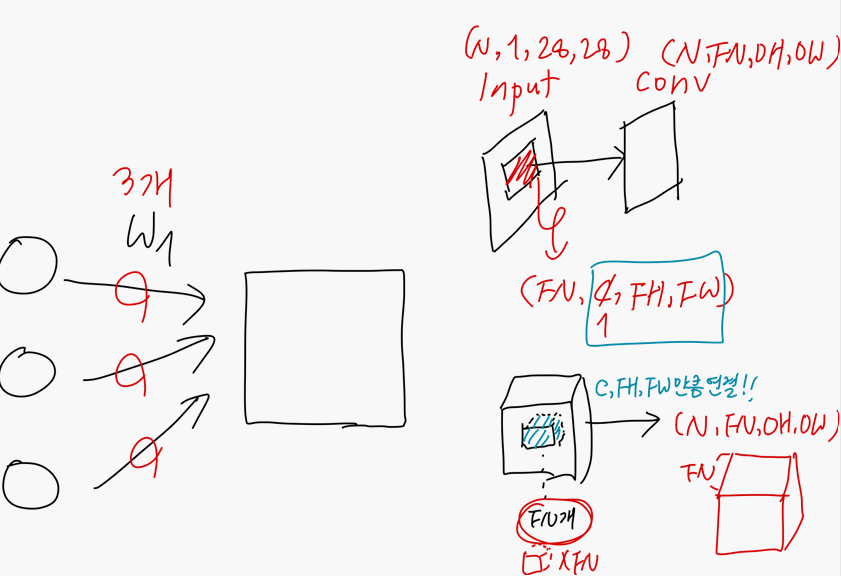 (N, 1, 28, 28)
Input
(N, FN, OH, OW)
Conv
3개
W1
(FN, C, FH, FW)
1
C, FH, FW만큼 연결!!
(N, FN, OH, OW)
FN
FN개
X FN